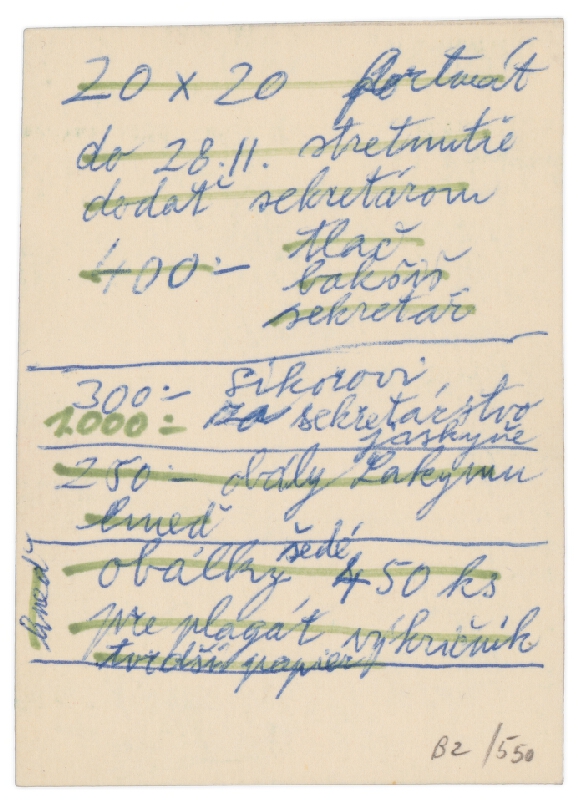 20 x 20 portrát
do 28.11. stretnutie
dodať sekretárom
400:- tlač
bakšiš
sekretár
300:- Sikorovi
1.000:- za sekretárstvo
jaskyňe
250- obály Lakymu
hneď
šedé
obálky 450 ks
hneď
pre plagát výkričník
tvrdší papier
B2/550